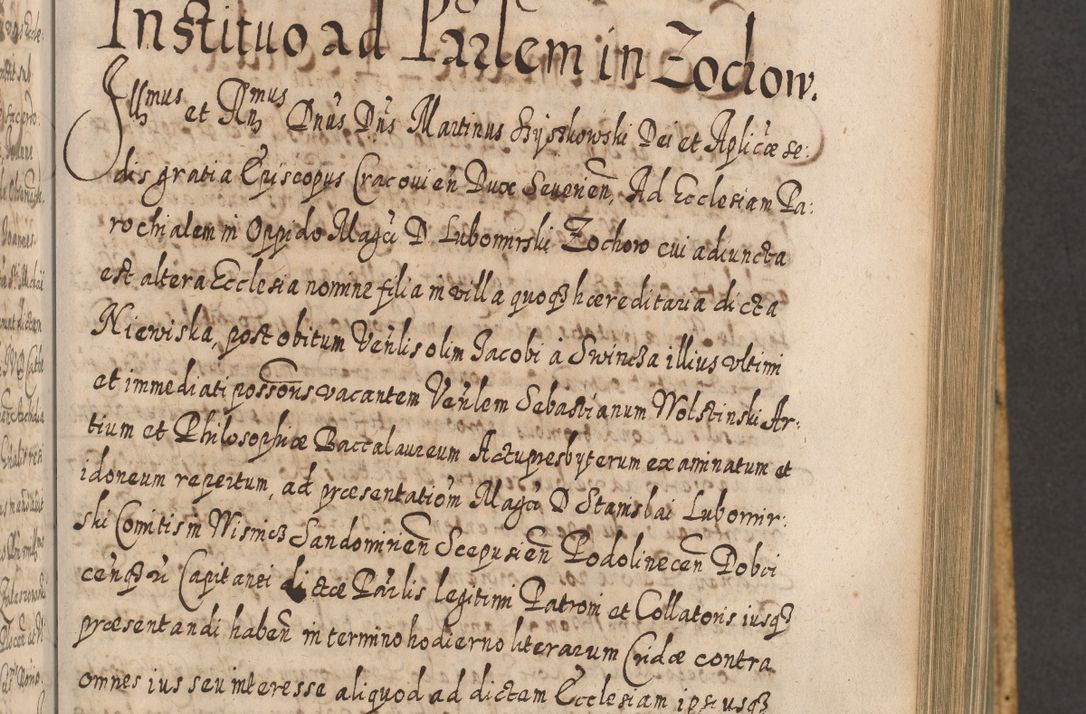 Institutio ad Parlem in Zochow.
Illmus et Rmus Dnus Dns Martinus Szyszkowski Dei et Aplicæ se:
dis gratia Episcopus Cracovien Dux Severien, Ad Ecclesiam Pa:
rochialem in Oppido Magci D Lubomirski Zochow cui adiuncta
est altera Ecclesia nomine filia in villa quoq hæreditaria dicta
Niewiska, post obitum Venlis olim Jacobi à Swincza illius ultimi
et immediati possoris vacantem Venlem Sebastianum Wolstinski Ar:
tium et Philosophiæ Baccalaureum Actupresbyterum examinatum et
idoneum repertum, ad præsentation Magci D Stanislai Lubomir:
ski Comitis in Wisnicz Sandomirien Scepusien Podolinecen Dobci
cenqz Capitanei dictæ Parlis legitimi Patroni et Collatoris iusq
præsentandi haben in termino hodierno literarum Cridæ contra
omnes ius seu interesse aliquod ad dictam Ecclesiam ipsiusq